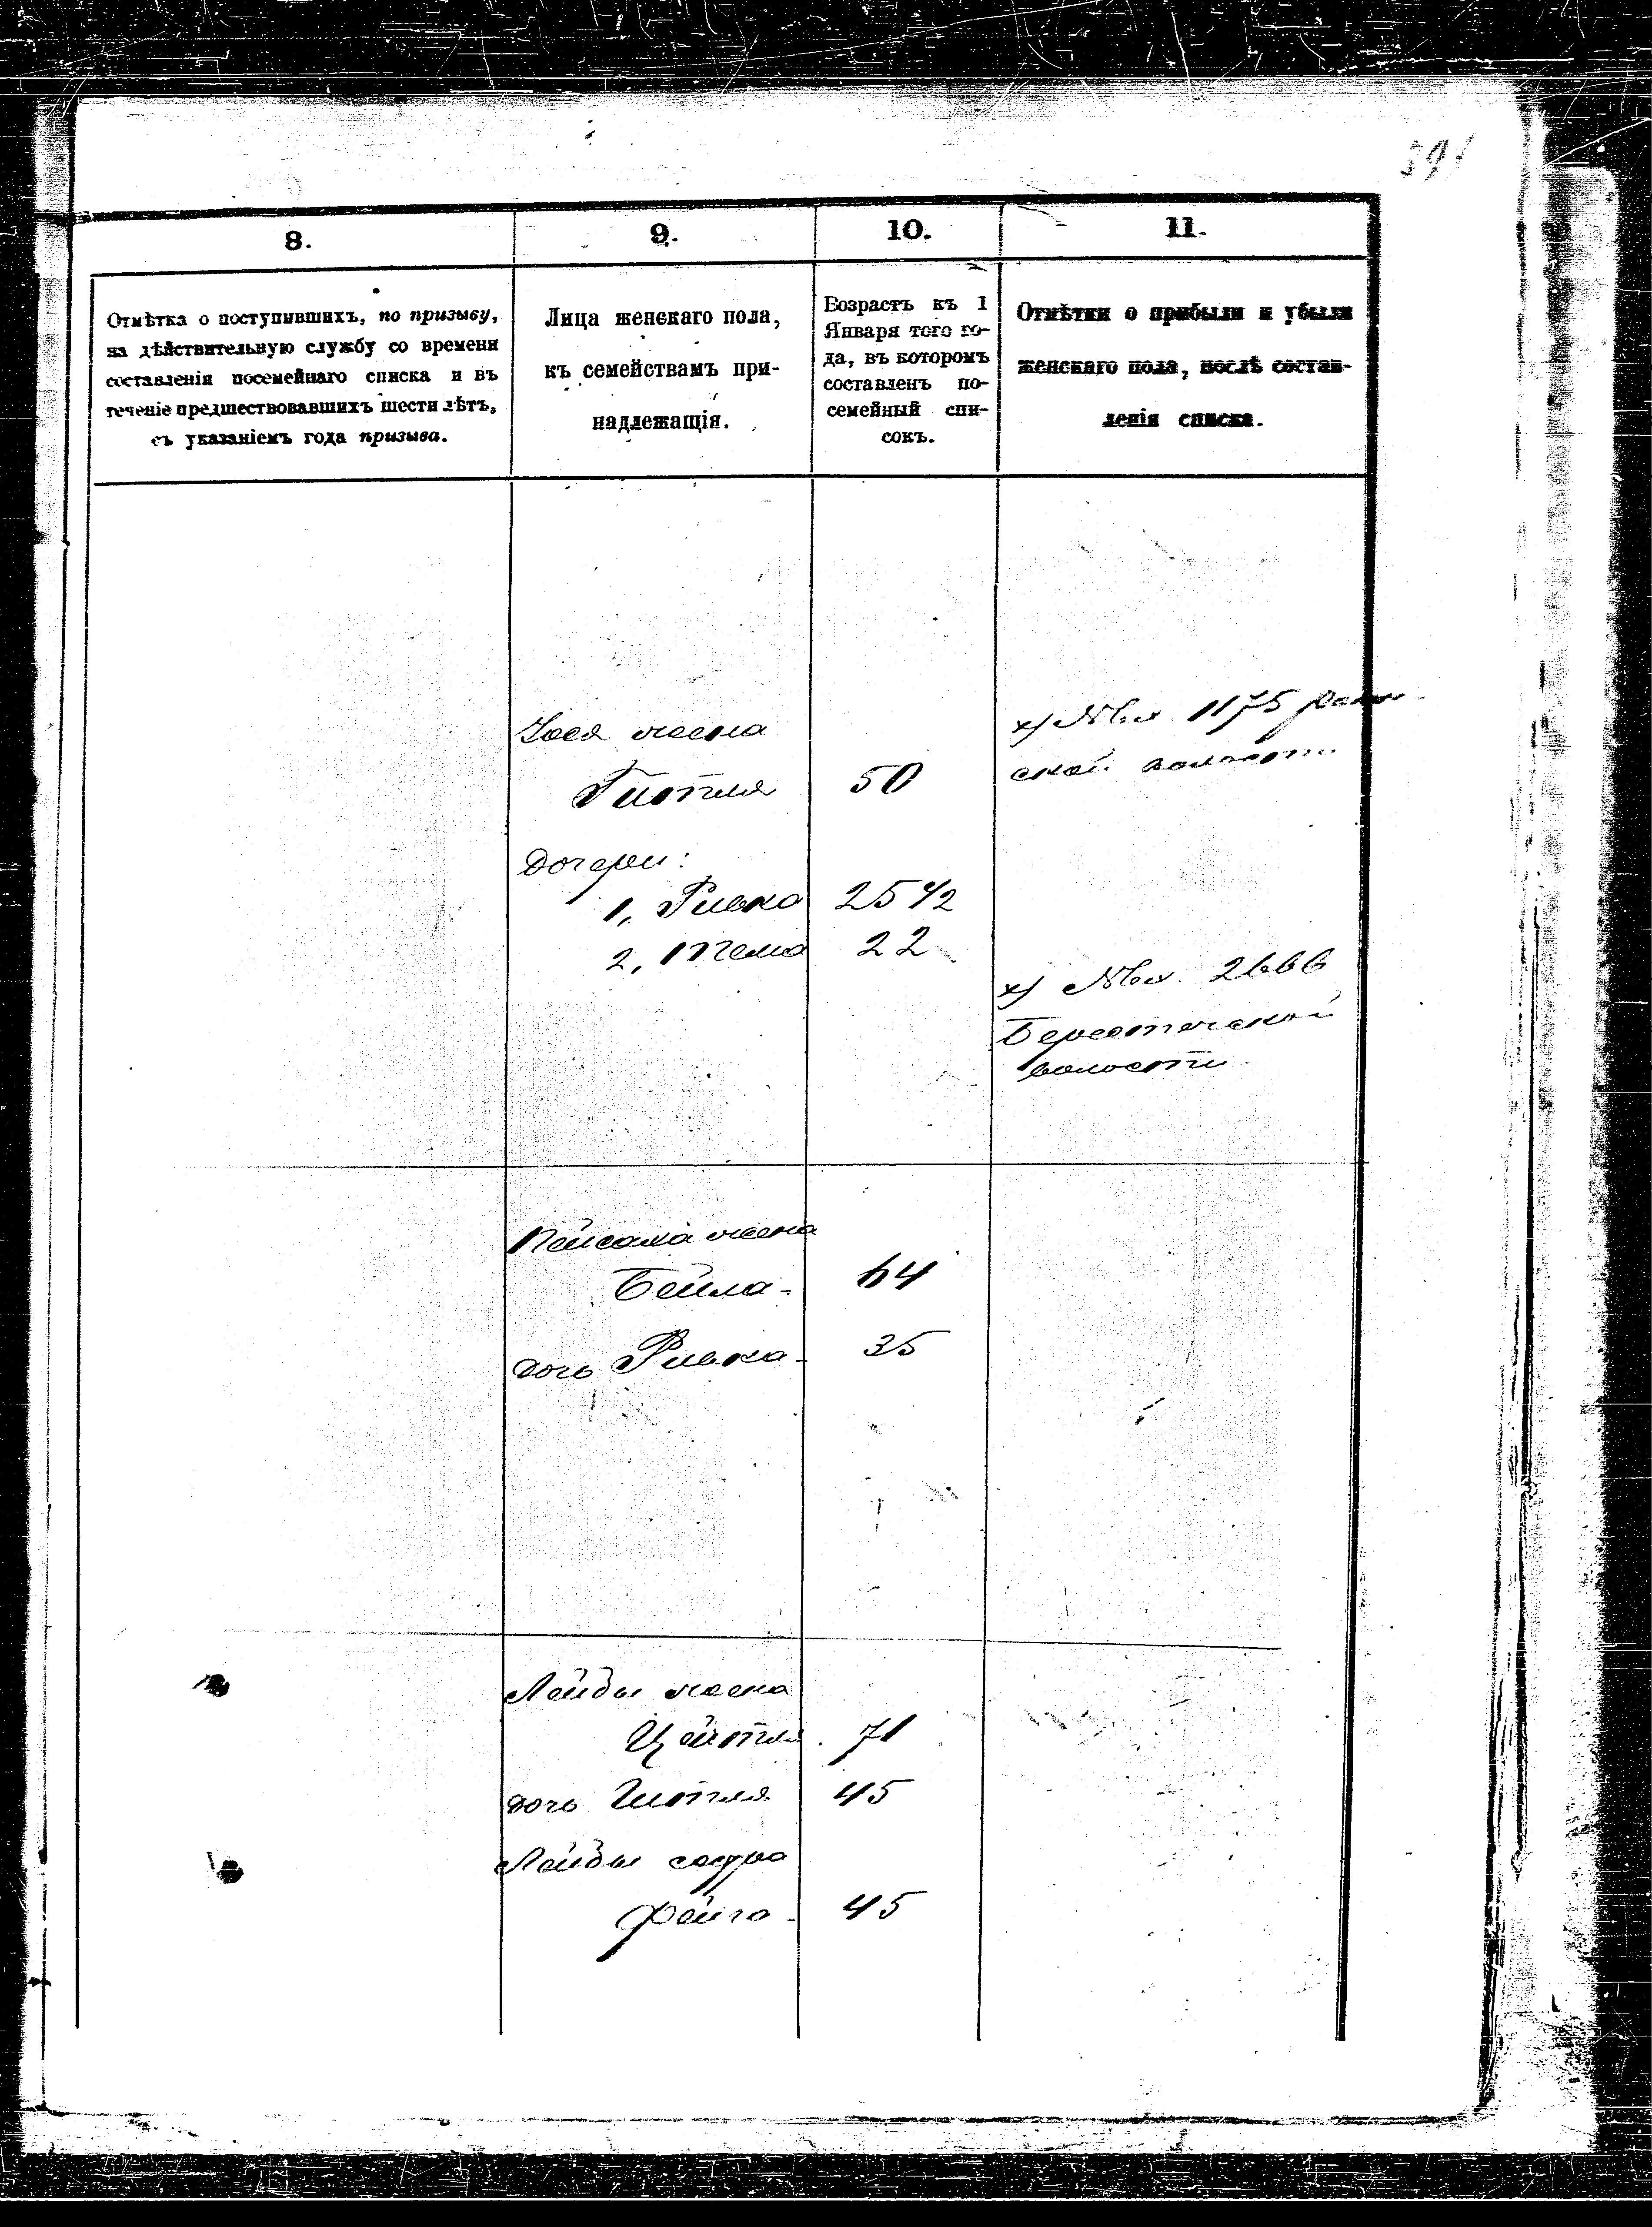 8.
9.
10.
11.
Отмѣтка о поступившихъ, по призыву,
на дѣйствительную службу со времени
составленія посемейнаго списка и въ
теченіе предшествовавшихъ шести лѣтъ,
съ указаніемъ года призыва.
Лица женскаго пола,
къ семействамъ при-
надлежащія.
Возрастъ къ 1
Января того го-
да, въ которомъ
составленъ по-
семейный спи-
сокъ.
Отмѣтки о прибыли и убыли
женскаго пола, послѣ состав-
ленія списка.
жена
Гитля 50
х) 1175
ской волости
дочери:
1, Ривка 25 1/2
2, 22
х) 2666
Берестечской
волости
Пейсаха жена
Бейла - 64
дочь Ривка - 35
Лейбы жена
Цейтля . 71
дочь Гитля 45
Лейбы сестра
Фейга - 45